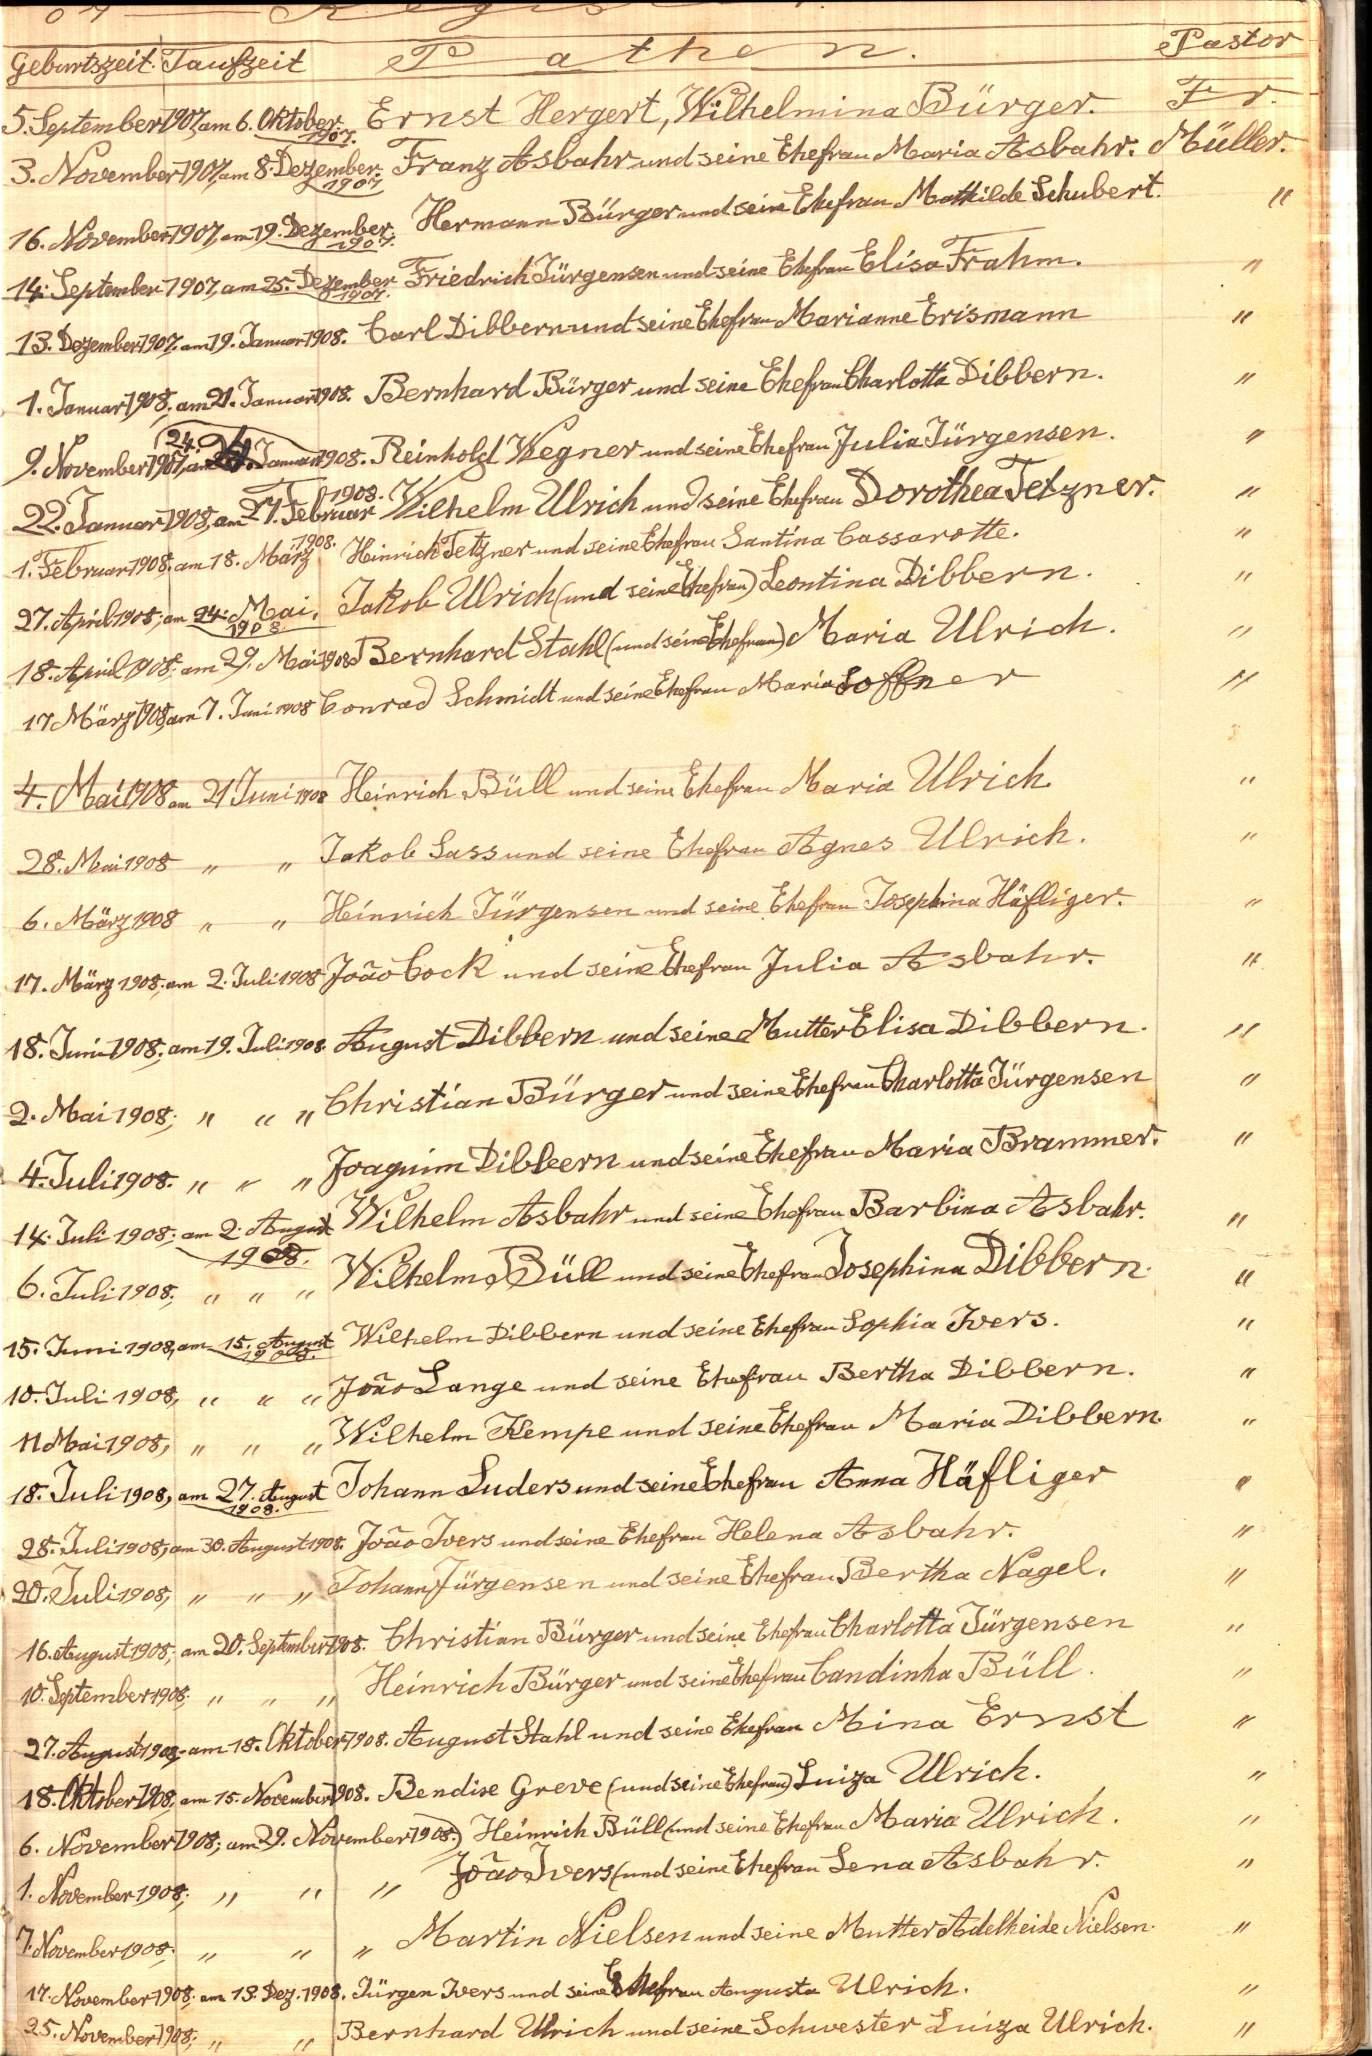 Geburtszeit. Taufzeit Pathen. Pastor
5. September 1907, am 6. Oktober 1907. Ernst Hergert, Wilhelmina Bürger. Fr.
3. November 1907, am 8. Dezember 1907 Franz Asbahr und seine Ehefrau Maria Asbahr. Müller.
16. November 1907, am 19. Dezember 1907. Hermann Bürger und seine Ehefrau Mathilde Schubert. "
14. September 1907, am 25. Dezember 1907. Friedrich Jürgensen und seine Ehefrau Elisa Frahm. "
13. Dezember 1907. am 19. Januar 1908. Carl Dibbern und seine Ehefrau Marianne Erismann "
1. Januar 1908, am 21. Januar 1908. Bernhard Bürger und seine Ehefrau Charlotta Dibbern. "
9. November 1907, am 24. Januar 1908. Reinhold Wegner und seine Ehefrau Julia Jürgensen. "
22. Januar 1908, am 27. Februar 1908. Wilhelm Ulrich und seine Ehefrau Dorothea Tetzner. "
1. Februar 1908. am 18. März 1908. Heinrich Tetzner und seine Ehefrau Santina Cassarotte. "
27. April 1908; am 24. Mai. 1908. Jakob Ulrich (und seine Ehefrau) Leontina Dibbern. "
18. April 1908. am 29. Mai 1908 Bernhard Stahl (und seine Ehefrau) Maria Ulrich. "
17 März 1908, am 7. Juni 1908 Conrad Schmidt und seine Ehefrau Maria Soffner "
4. Mai 1908 am 21 Juni 1908 Heinrich Büll und seine Ehefrau Maria Ulrich. "
28. Mai 1908 " " Jakob Sass und seine Ehefrau Agnes Ulrich. "
6. März 1908 " " Heinrich Jürgensen und seine Ehefrau Josephina Häfliger. "
17. März 1908; am 2. Juli 1908 João Cock und seine Ehefrau Julia Asbahr. "
18. Juni 1908; am 19. Juli 1908. August Dibbern und seine Mutter Elisa Dibbern. "
2. Mai 1908; " " " Christian Bürger und seine Ehefrau Charlotta Jürgensen "
4. Juli 1908. " " " Joaquim Dibbern und seine Ehefrau Maria Brammer. "
14. Juli 1908; am 2. August 1908. Wilhelm Asbahr und seine Ehefrau Barbina Asbahr. "
6. Juli 1908; " " " Wilhelm Büll und seine Ehefrau Josephina Dibbern. "
15. Juni 1908, am 15. August 1908. Wilhelm Dibbern und seine Ehefrau Sophia Ivers. "
10. Juli 1908, " " " João Lange und seine Ehefrau Bertha Dibbern. "
11 Mai 1908, " " " Wilhelm Kempe und seine Ehefrau Maria Dibbern. "
18. Juli 1908, am 27. August 1908. Johann Luders und seine Ehefrau Anna Häfliger "
28. Juli 1908, am 30. August 1908. João Ivers und seine Ehefrau Helena Asbahr. "
20. Juli 1908, " " " Johann Jürgensen und seine Ehefrau Bertha Nagel. "
16. August 1908; am 20. September 1908. Christian Bürger und seine Ehefrau Charlotta Jürgensen "
10. September 1908. " " " Heinrich Bürger und seine Ehefrau Candinha Büll. "
27. August 1908, am 18. Oktober 1908. August Stahl und seine Ehefrau Mina Ernst "
18. Oktober 1908, am 15. November 1908. Bendise Greve (und seine Ehefrau) Luiza Ulrich. "
6. November 1908; am 29. November 1908.) Heinrich Büll (und seine Ehefrau Maria Ulrich. "
1. November 1908; " " " João Ivers (und seine Ehefrau Lena Asbahr. "
7. November 1908. " " " Martin Nielsen und seine Mutter Adelheide Nielsen. "
17. November 1908. am 13. Dez. 1908. Jürgen Ivers und seine Ehefrau Augusta Ulrich. "
25. November 1908; " " Bernhard Ulrich und seine Schwester Luiza Ulrich. "